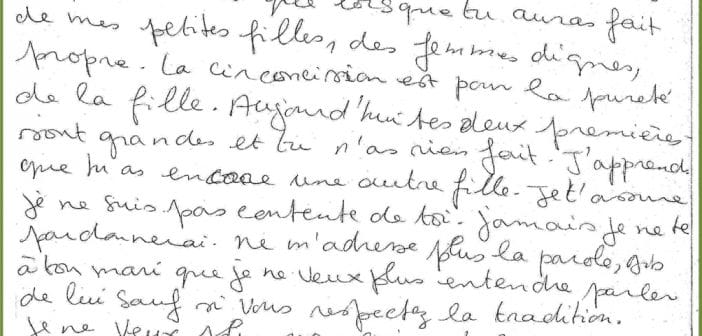 que lorsque tu auras fait
de mes petites filles, des femmes dignes,
propre. La circoncission est pour la pureté
de la fille. Aujourd'hui tes deux premières
sont grandes et tu n'as rien fait. J'apprends
que tu as encore une autre fille. Je t'assure
je ne suis pas contente de toi. jamais je ne te
pardonnerai. ne m'adresse plus la parole, dis
à ton mari que je ne veux plus entendre parler
de lui sauf si vous respectez la tradition.
je ne veux